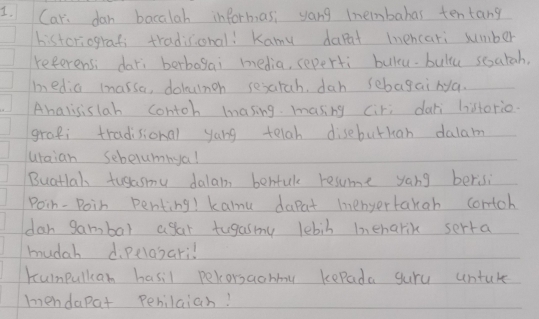 1. Cari dan bacalah informasi yang membahas tentang
historiografi tradisional! Kamu dapat mencari sumber
referensi dari berbagai media, seperti buku-buku sejarah,
media massa, dokumen sejarah, dan sebagainya.
Analisislah contoh masing-masing ciri dari historio-
grafi tradisional yang telah disebutkan dalam
uraian sebelumnya!
Buatlah tugasmu dalam bentuk resume yang berisi
Poin-Poin Penting! kamu dapat menyertakan contoh
dan gambar agar tugasmu lebih menarik serta
mudah dipelajari!
kumpulkan hasil pekerjaanmu kepada guru untuk
mendapat Penilaian!